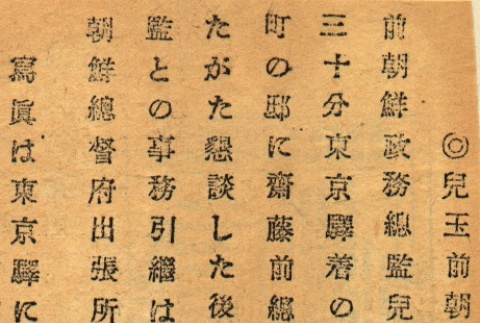 ◎兒玉前朝
前朝鮮政務總監兒
三十分東京驛着の
町の邸に齋藤前總
たがた懇談した後
監との事務引繼は
朝鮮總督府出張所
寫眞は東京驛に